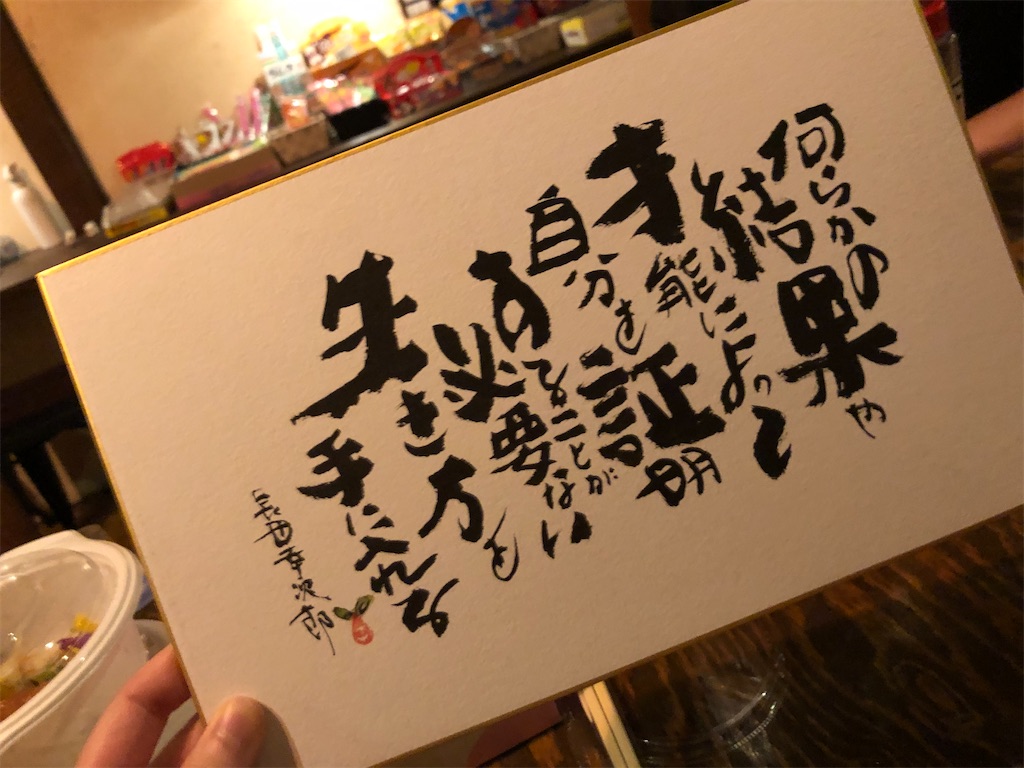 何らかの
結果や
才能によって
自分を証明
することが
必要ない
生き方を
手に入れる
幸次郎